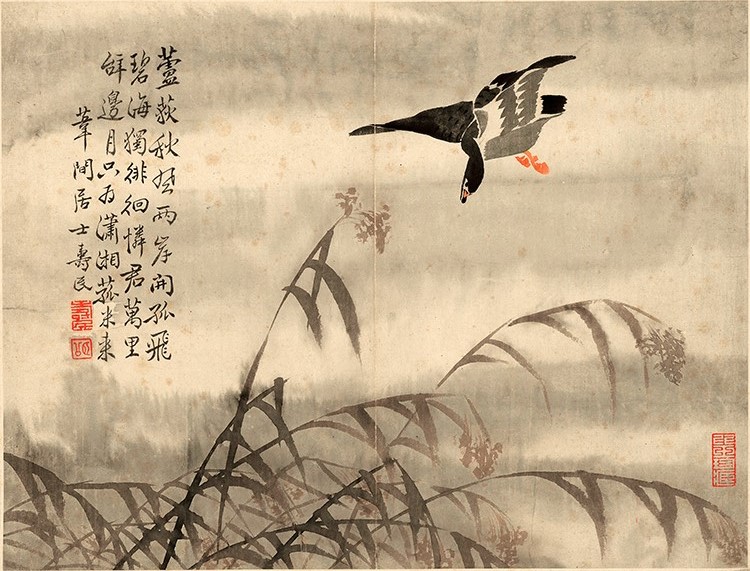 蘆荻秋風兩岸開孤飛
碧海獨徘徊憐君萬里
辭邊月只為瀟湘菰米来
葦間居士壽民